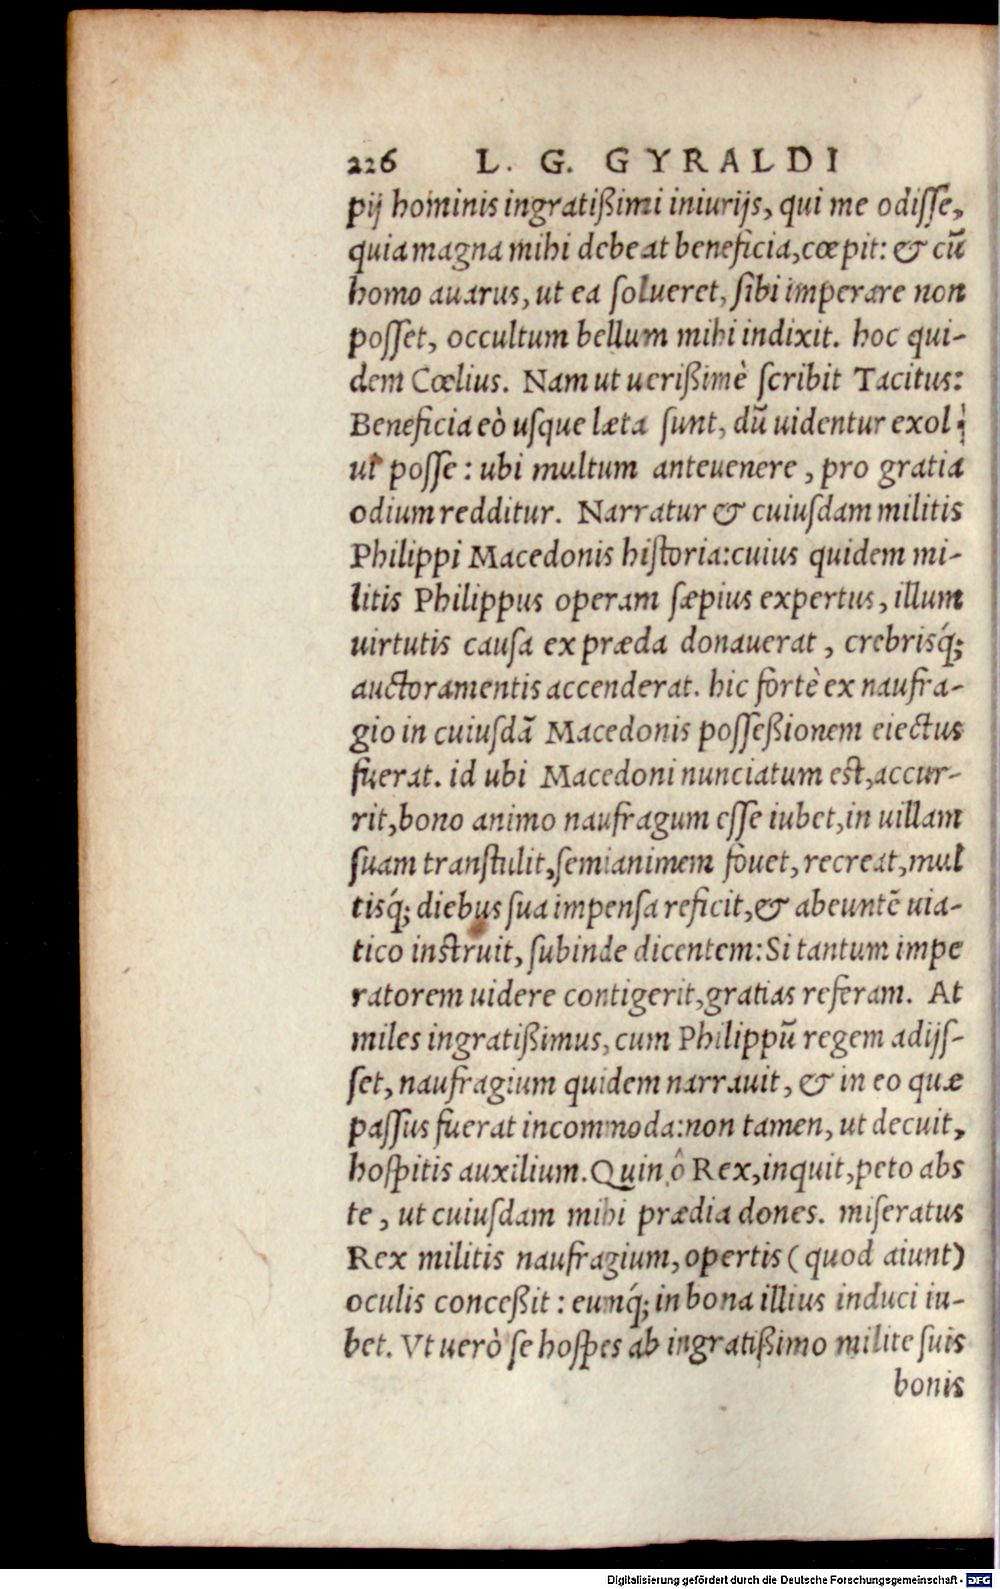 226 L. G. GYRALDI
pij hominis ingratißimi iniurijs, qui me odiſſe,
quia magna mihi debeat beneficia, cœpit: & cũ
homo auarus, ut ea ſolueret, ſibi imperare non
poſſet, occultum bellum mihi indixit. hoc qui-
dem Cœlius. Nam ut uerißimè ſcribit Tacitus:
Beneficia eò uſque læta ſunt, dũ uidentur exol
ui poſſe: ubi multum anteuenere, pro gratia
odium redditur. Narratur & cuiuſdam militis
Philippi Macedonis hiſtoria: cuius quidem mi-
litis Philippus operam ſæpius expertus, illum
uirtutis cauſa ex præda donauerat, crebrisq́;
auctoramentis accenderat. hic fortè ex naufra-
gio in cuiuſdã Macedonis poſſeßionem eiectus
fuerat. id ubi Macedoni nunciatum est, accur-
rit, bono animo naufragum eſſe iubet, in uillam
ſuam tranſtulit, ſemianimem fouet, recreat, mul
tisq́; diebus ſua impenſa reficit, & abeuntẽ uia-
tico inſtruit, ſubinde dicentem: Si tantum impe
ratorem uidere contigerit, gratias referam. At
miles ingratißimus, cum Philippũ regem adijſ-
ſet, naufragium quidem narrauit, & in eo quæ
paſſus fuerat incommoda: non tamen, ut decuit,
hoſpitis auxilium. Quin ô Rex, inquit, peto abs
te, ut cuiuſdam mihi prædia dones. miſeratus
Rex militis naufragium, opertis (quod aiunt)
oculis conceßit: eumq́; in bona illius induci iu-
bet. Vt uerò ſe hoſpes ab ingratißimo milite ſuis
bonis
Digitalisierung gefördert durch die Deutsche Forschungsgemeinschaft - DFG